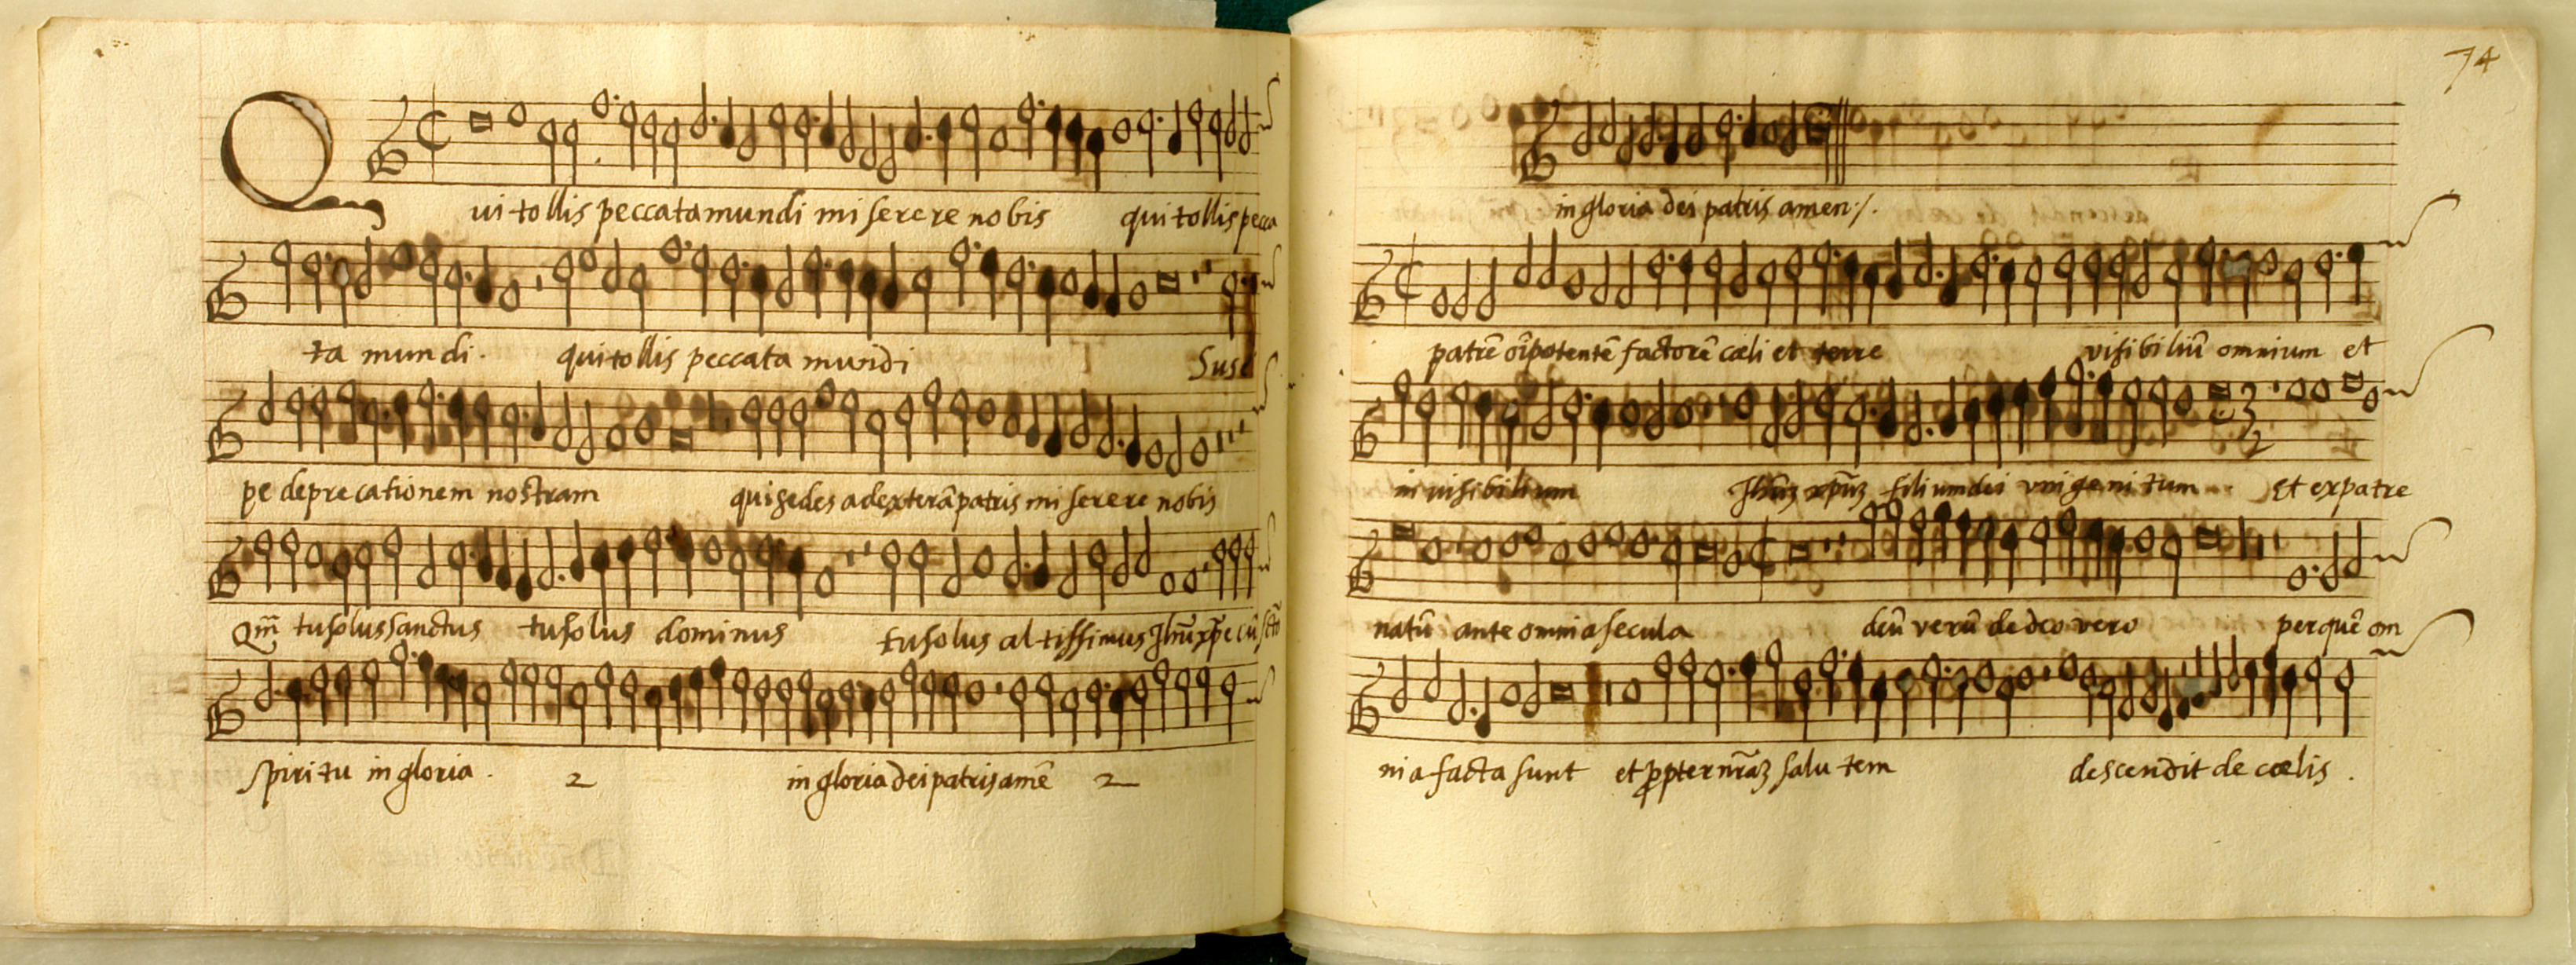 Qui tollis peccata mundi miserere nobis qui tollis pecca
ta mundi. qui tollis peccata mundi Susci
pe deprecationem nostram qui sedes ad exterã patris miserere nobis
Qm̃ tu solus sanctus tu solus dominus tu solus altissimus Jhũ xp̃e cũ sctõ
spiritu in gloria. 2 in gloria dei patris amẽ 2
74
in gloria dei patris amen ·/.
patrẽ oĩpotentẽ factorẽ cæli et terre visibiliũ omnium et
invisibilium Jhũz xpũz filium dei vnigenitum Et ex patre
natũ ante omnia secula deũ verũ de deo vero per quẽ om
nia facta sunt et ꝓpter nr̃az salutem descendit de cœlis.